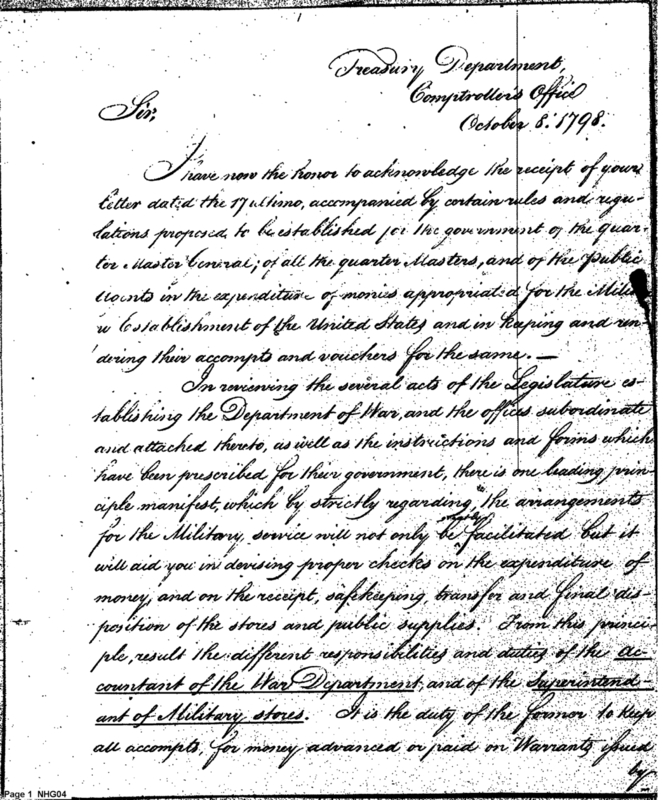 Treasury Department,
Comptroller's Office
Sir,
October 8. 1798.
I have now the honor to acknowledge the receipt of your
letter dated the 17 ultimo, accompanied by certain rules and regu-
lations proposed to be established for the government of the quar-
ter Master General; of all the quarter Masters, and of the Public
Agents in the expenditure of monies appropriated for the Milita-
ry Establishment of the United States and in keeping and ren-
dering their accompts and vouchers for the same. —
In reviewing the several acts of the Legislature es-
tablishing the Department of War, and the offices subordinate
and attached thereto, as well as the instructions and forms which
have been prescribed for their government, there is one leading prin-
ciple manifest, which by strictly regarding, the arrangements
for the Military service will not only be greatly facilitated but it
will aid you in devising proper checks on the expenditure of
money, and on the receipt, safekeeping, transfer and final dis-
position of the stores and public supplies. From this princi-
ple, result the different responsibilities and duties of the ac-
countant of the War Department and of the Superintend-
ant of Military stores. It is the duty of the former to keep
all accompts, for money advanced or paid on Warrants issued
by
Page 1 NHG04